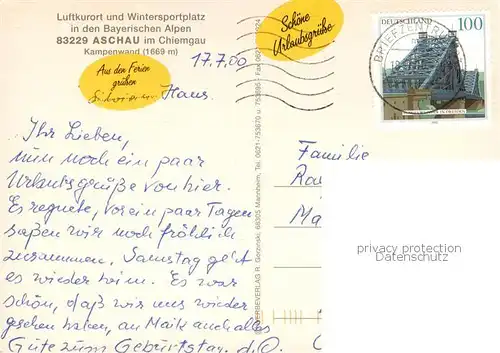 Luftkurort und Wintersportplatz
in den Bayerischen Alpen
83229 ASCHAU im Chiemgau
Kampenwand (1669 m)
17.7.00
Schöne
Urlaubsgrüße
DEUTSCHLAND 100
BRIEFZENTRUM
Aus den Ferien
grüßen
Hans.
Ihr Lieben,
nun noch ein paar
Urlaubsgrüße von hier.
Es regnete, vor ein paar Tagen
saßen wir noch fröhlich
zusammen. Samstag geht
es wieder heim. Es war
schön, daß wir uns wieder
gesehen haben, an Maik auch alles
Gute zum Geburtstag.
WERBEVERLAG R. Gerzinski, 68305 Mannheim, Tel. 0621-753670 u. 753685 - Fax 0621
Familie
Ra
Ma
privacy protection
Datenschutz